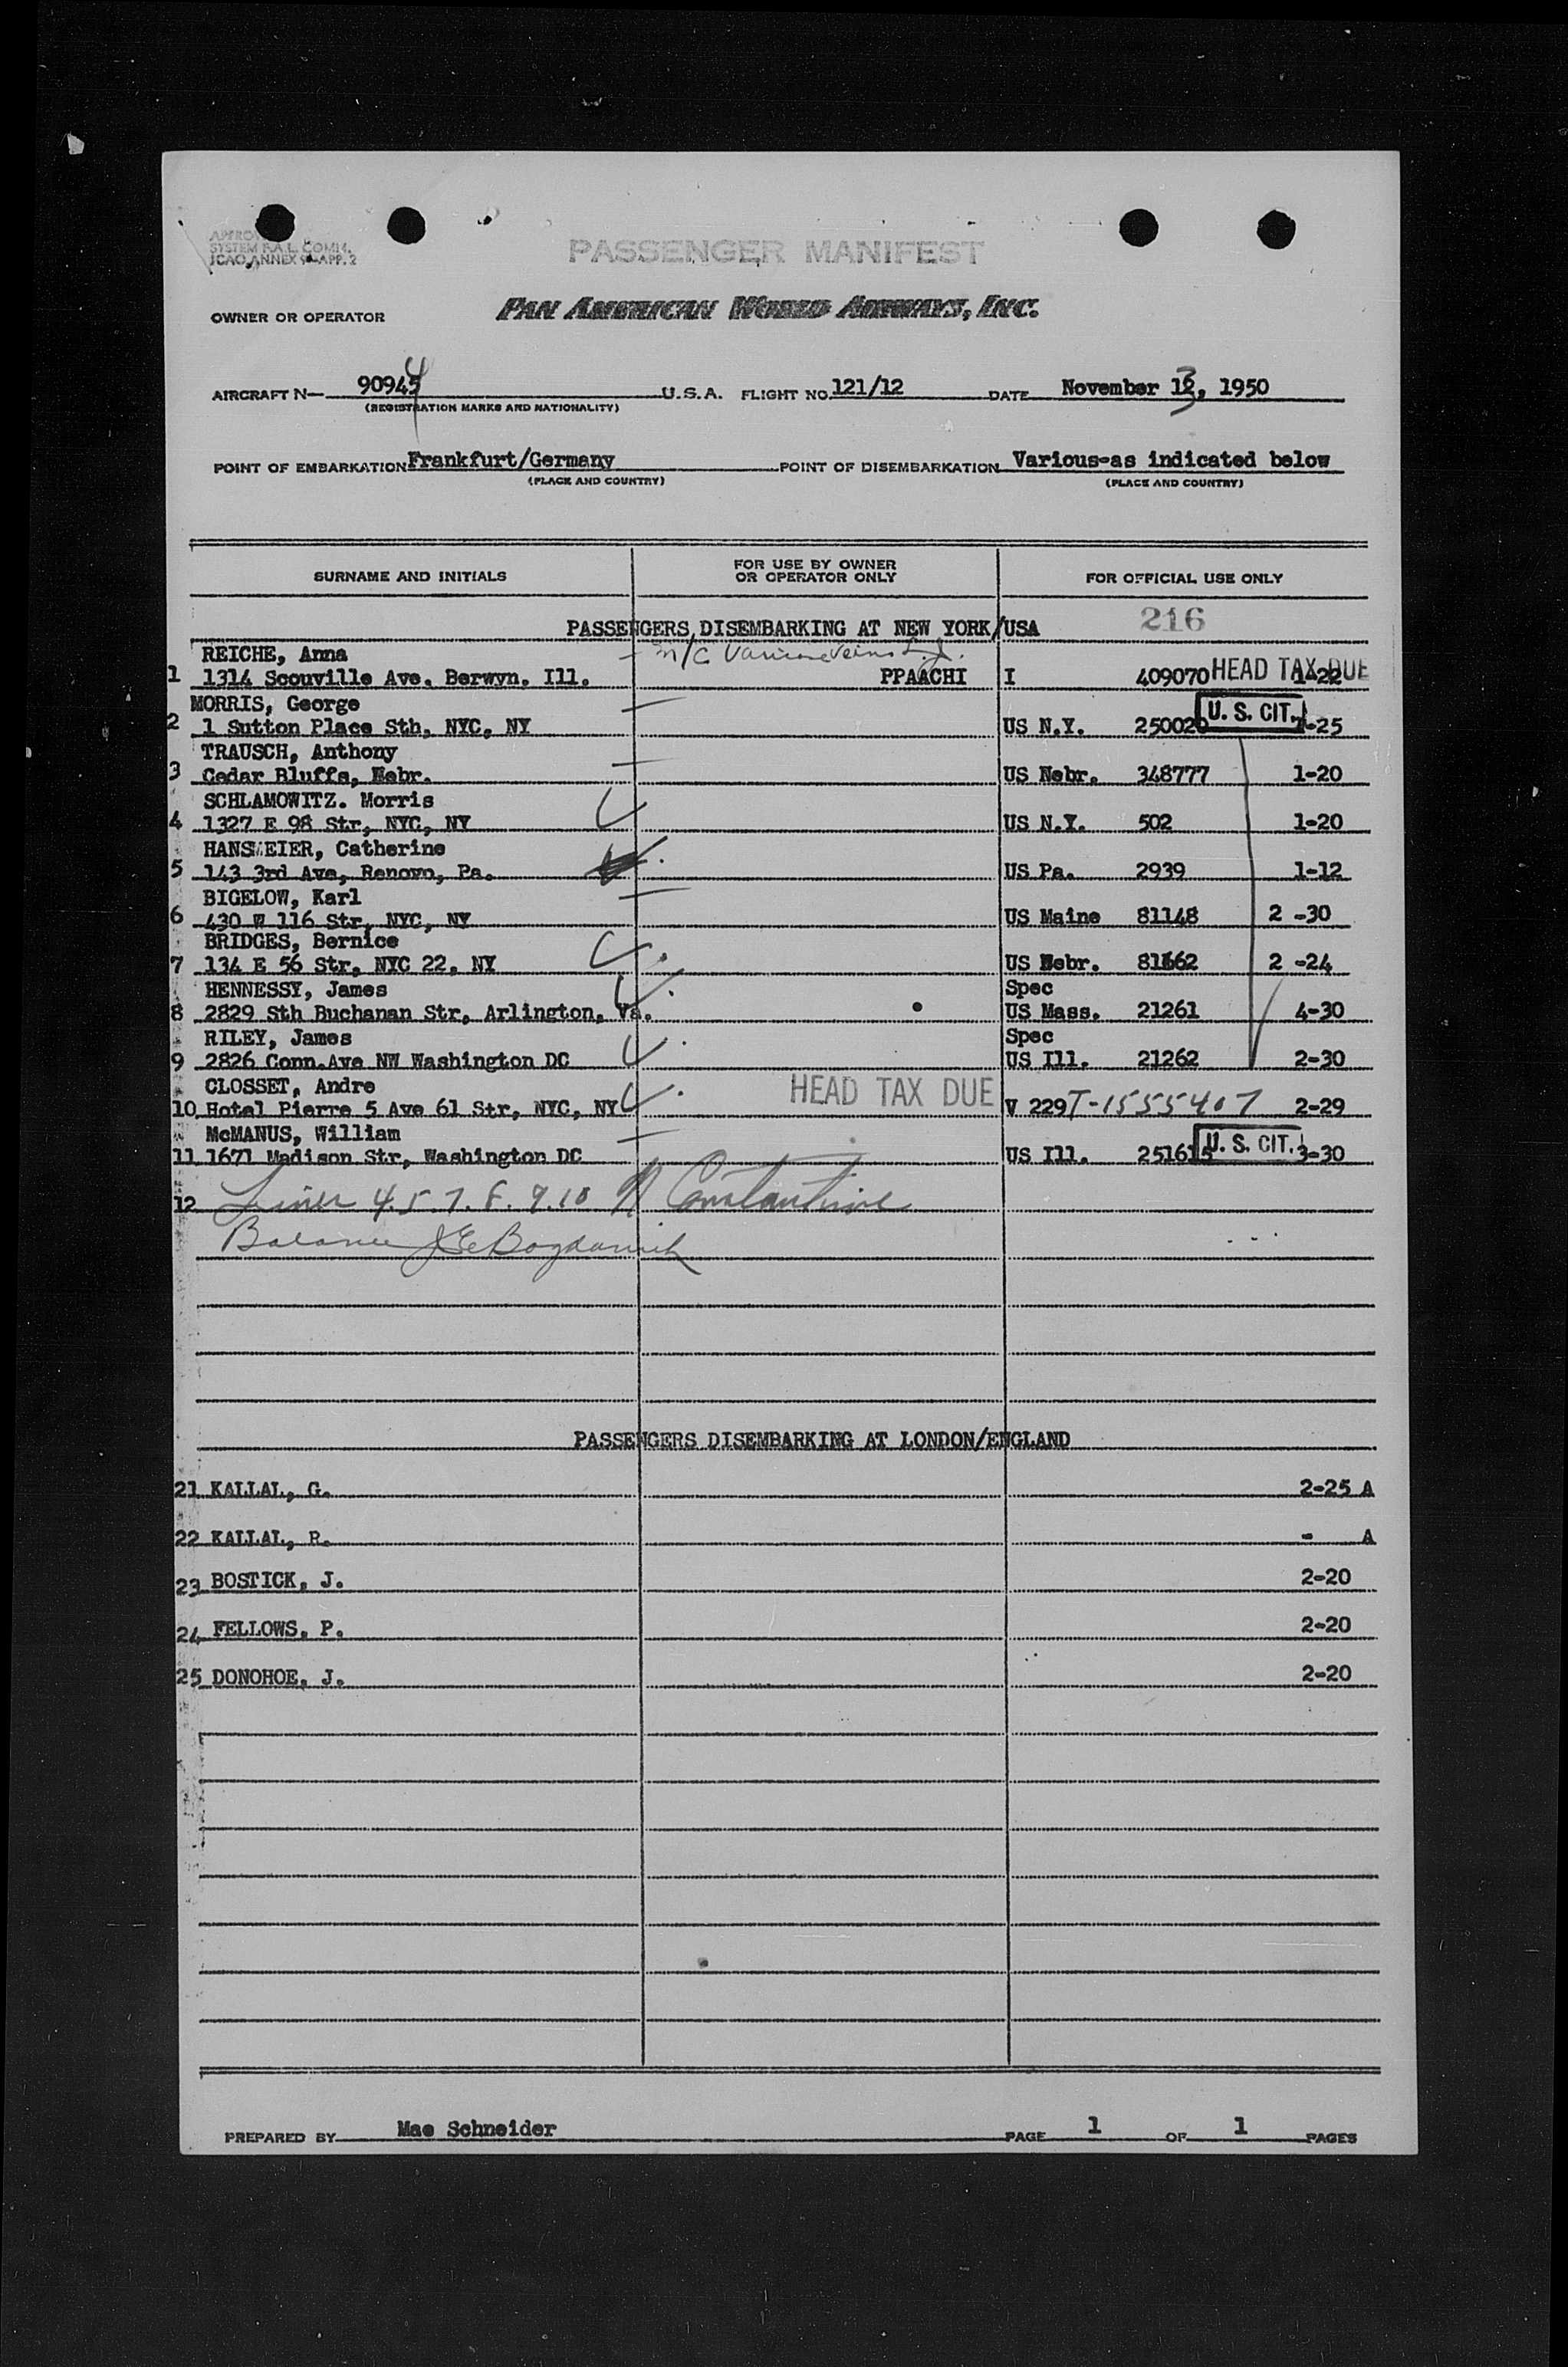 SYSTEM F.A.L. COMM.
ICAO ANNEX 9 APP. 2
PASSENGER MANIFEST
OWNER OR OPERATOR PAN AMERICAN WORLD AIRWAYS, INC.
AIRCRAFT N— 90944 U.S.A. FLIGHT NO. 121/12 DATE November 13, 1950
(REGISTRATION MARKS AND NATIONALITY)
POINT OF EMBARKATION Frankfurt/Germany POINT OF DISEMBARKATION Various-as indicated below
(PLACE AND COUNTRY) (PLACE AND COUNTRY)
SURNAME AND INITIALS FOR USE BY OWNER OR OPERATOR ONLY FOR OFFICIAL USE ONLY
216
PASSENGERS DISEMBARKING AT NEW YORK/USA
REICHE, Anna M/C Varicose Veins
1 1314 Scouville Ave. Berwyn. Ill. PPAACHI I 409070 HEAD TAX DUE 1-22
MORRIS, George
2 1 Sutton Place Sth, NYC, NY US N.Y. 250020 U. S. CIT. 1-25
TRAUSCH, Anthony
3 Cedar Bluffs, Nebr. US Nebr. 348777 1-20
SCHLAMOWITZ. Morris
4 1327 E 98 Str, NYC, NY US N.Y. 502 1-20
HANSMEIER, Catherine
5 143 3rd Ave, Renovo, Pa. US Pa. 2939 1-12
BIGELOW, Karl
6 430 W 116 Str, NYC, NY US Maine 81148 2 -30
BRIDGES, Bernice
7 134 E 56 Str, NYC 22, NY US Nebr. 81662 2 -24
HENNESSY, James Spec
8 2829 Sth Buchanan Str, Arlington, Va. US Mass. 21261 4-30
RILEY, James Spec
9 2826 Conn.Ave NW Washington DC US Ill. 21262 2-30
CLOSSET, Andre HEAD TAX DUE
10 Hotel Pierre 5 Ave 61 Str, NYC, NY V 229 T-1555407 2-29
McMANUS, William
11 1671 Madison Str, Washington DC US Ill. 251615 U. S. CIT. 3-30
12 Lines 4.5.7.8.9.10 N Constantine
Balance J E Bogdanich
PASSENGERS DISEMBARKING AT LONDON/ENGLAND
21 KALLAL, G. 2-25 A
22 KALLAL, R. - A
23 BOSTICK, J. 2-20
24 FELLOWS, P. 2-20
25 DONOHOE, J. 2-20
PREPARED BY Mae Schneider PAGE 1 OF 1 PAGES